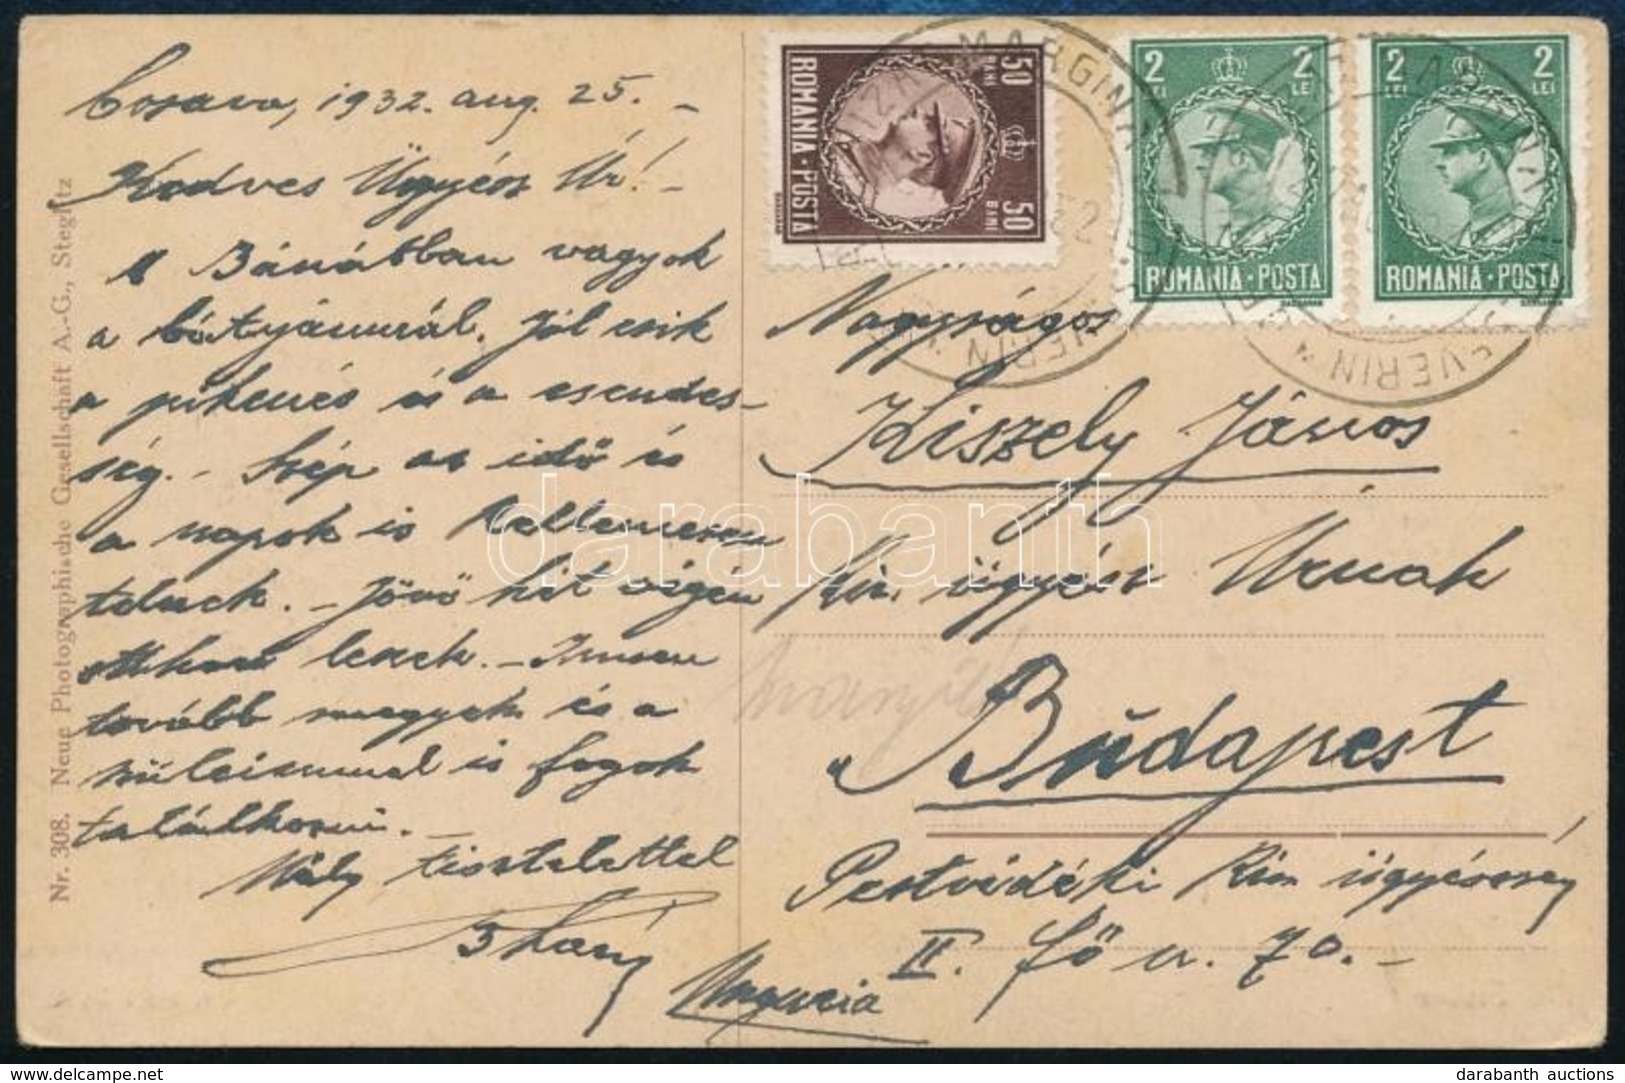 Cosava, 1932. aug. 25. -
Kedves Ügyész Úr! -
A Bánátban vagyok
a bátyámnál. Jól esik
a pihenés és a csendes-
ség. - Szép az idő és
a napok is kellemesen
telnek. - Jövő hét végén
otthon leszek. - Innen
tovább megyek és a
szüleimmel is fogok
találkozni. -
Mély tisztelettel
Nagyságos
Kiszely János
kir. ügyész Úrnak
Budapest
Pestvidéki Kir. ügyészség
II. Fő u. 70. -
Ungaria
Nr. 308. Neue Photographische Gesellschaft A.-G., Steglitz
50 BANI
ROMANIA · POSTA
50 BANI
2 LEI 2 LEI
ROMANIA · POSTA
2 LEI 2 LEI
ROMANIA · POSTA
MARGINA
VERIN
EVERIN
darabanth
delcampe.net
darabanth auctions